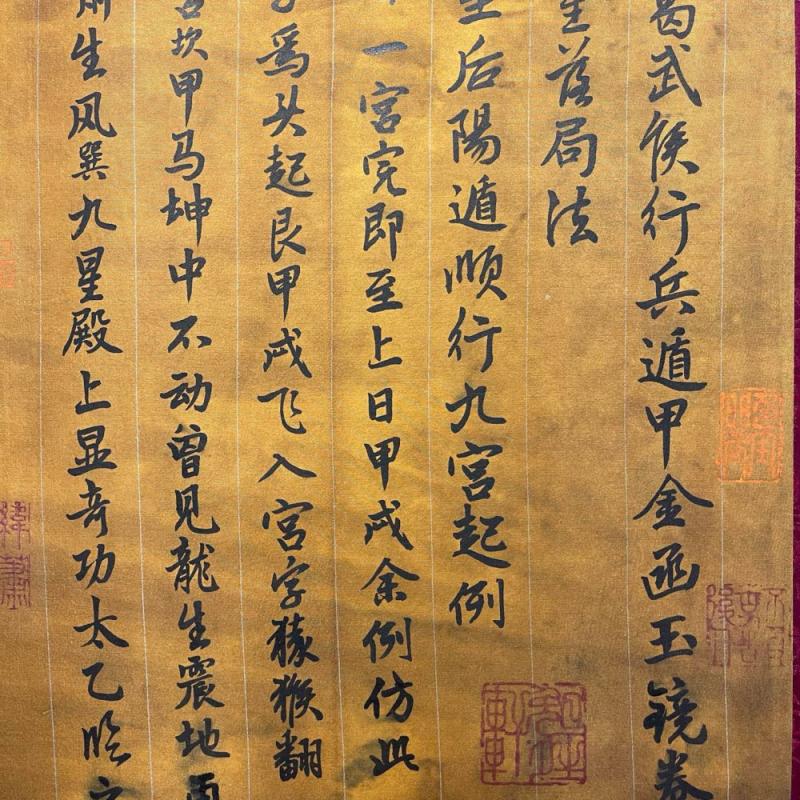 葛武侯行兵遁甲金函玉镜卷
落局法
至后陽遁顺行九宫起例
一宫完即至上日甲戌余例仿此
爲头起艮甲戌飞入宫字猿猴翻
宫坎甲马坤中不动曾见龍生震地
生风巽九星殿上显奇功太乙临